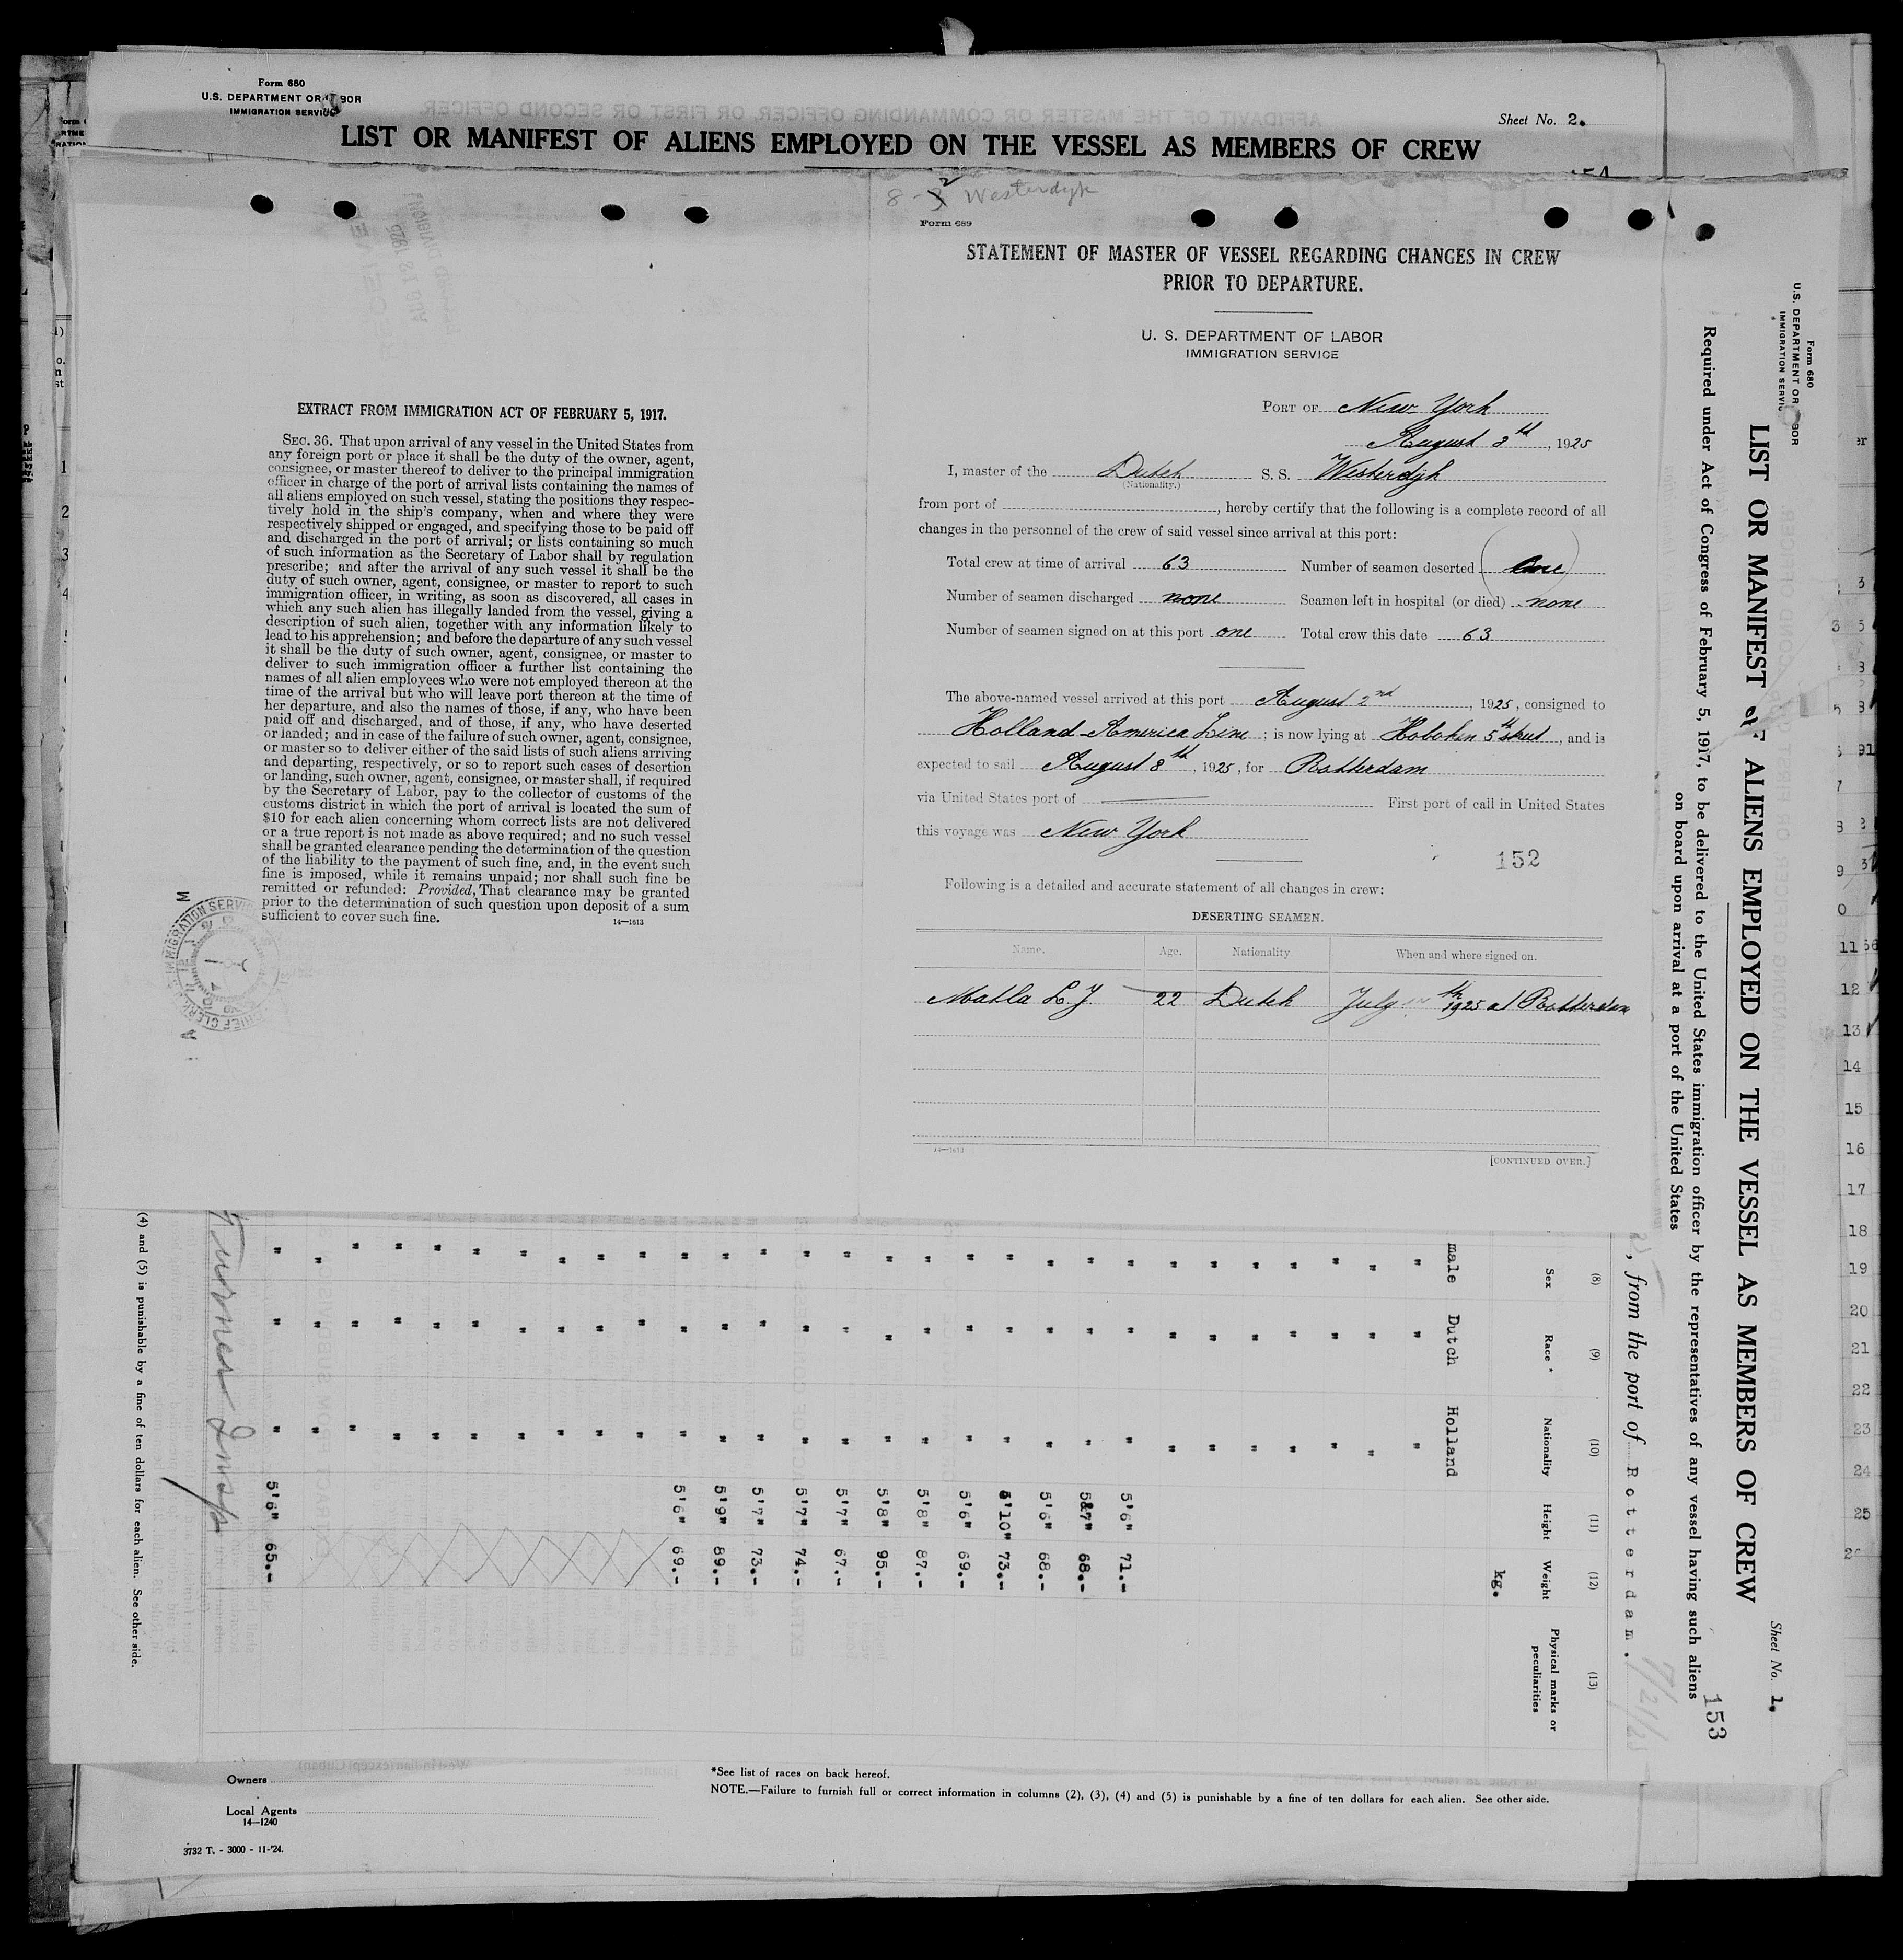 Form 680
U.S. DEPARTMENT OR LABOR
IMMIGRATION SERVICE
Sheet No. 2.
LIST OR MANIFEST OF ALIENS EMPLOYED ON THE VESSEL AS MEMBERS OF CREW
EXTRACT FROM IMMIGRATION ACT OF FEBRUARY 5, 1917.
SEC. 36. That upon arrival of any vessel in the United States from
any foreign port or place it shall be the duty of the owner, agent,
consignee, or master thereof to deliver to the principal immigration
officer in charge of the port of arrival lists containing the names of
all aliens employed on such vessel, stating the positions they respec-
tively hold in the ship's company, when and where they were
respectively shipped or engaged, and specifying those to be paid off
and discharged in the port of arrival; or lists containing so much
of such information as the Secretary of Labor shall by regulation
prescribe; and after the arrival of any such vessel it shall be the
duty of such owner, agent, consignee, or master to report to such
immigration officer, in writing, as soon as discovered, all cases in
which any such alien has illegally landed from the vessel, giving a
description of such alien, together with any information likely to
lead to his apprehension; and before the departure of any such vessel
it shall be the duty of such owner, agent, consignee, or master to
deliver to such immigration officer a further list containing the
names of all alien employees who were not employed thereon at the
time of the arrival but who will leave port thereon at the time of
her departure, and also the names of those, if any, who have been
paid off and discharged, and of those, if any, who have deserted
or landed; and in case of the failure of such owner, agent, consignee,
or master so to deliver either of the said lists of such aliens arriving
and departing, respectively, or so to report such cases of desertion
or landing, such owner, agent, consignee, or master shall, if required
by the Secretary of Labor, pay to the collector of customs of the
customs district in which the port of arrival is located the sum of
$10 for each alien concerning whom correct lists are not delivered
or a true report is not made as above required; and no such vessel
shall be granted clearance pending the determination of the question
of the liability to the payment of such fine, and, in the event such
fine is imposed, while it remains unpaid; nor shall such fine be
remitted or refunded: Provided, That clearance may be granted
prior to the determination of such question upon deposit of a sum
sufficient to cover such fine.
14—1613
8-2 Westerdyk
Form 689
STATEMENT OF MASTER OF VESSEL REGARDING CHANGES IN CREW
PRIOR TO DEPARTURE.
U. S. DEPARTMENT OF LABOR
IMMIGRATION SERVICE
PORT OF New York
August 2th, 1925
I, master of the Dutch S. S. Westerdijk
(Nationality.)
from port of , hereby certify that the following is a complete record of all
changes in the personnel of the crew of said vessel since arrival at this port:
Total crew at time of arrival 63 Number of seamen deserted One
Number of seamen discharged none Seamen left in hospital (or died) none
Number of seamen signed on at this port one Total crew this date 63
The above-named vessel arrived at this port August 2nd, 1925, consigned to
Holland-America Line; is now lying at Hoboken 5th street, and is
expected to sail August 8th, 1925, for Rotterdam
via United States port of First port of call in United States
this voyage was New York
152
Following is a detailed and accurate statement of all changes in crew:
DESERTING SEAMEN.
Name. Age. Nationality When and where signed on.
Matla L. J. 22 Dutch July th 1925 at Rotterdam
14—1613
[CONTINUED OVER.]
Form 680
U.S. DEPARTMENT OR LABOR
IMMIGRATION SERVIC
Sheet No. 1.
LIST OR MANIFEST OF ALIENS EMPLOYED ON THE VESSEL AS MEMBERS OF CREW
Required under Act of Congress of February 5, 1917, to be delivered to the United States immigration officer by the representatives of any vessel having such aliens
on board upon arrival at a port of the United States
153
, from the port of Rotterdam.
7/21/25
(8) (9) (10) (11) (12) (13)
Sex Race * Nationality Height Weight Physical marks or peculiarities
kg.
male Dutch Holland
" " "
" " "
" " "
" " "
" " "
" " "
" " "
" " " 5'6" 71.-
" " " 5&7" 68.-
" " " 5'6" 68.-
" " " 5'10" 73.-
" " " 5'6" 69.-
" " " 5'8" 87.-
" " " 5'8" 95.-
" " " 5'7" 67.-
" " " 5'7" 74.-
" " " 5'7" 73.-
" " " 5'9" 89.-
" " " 5'6" 69.-
" " "
" " "
" " "
" " "
" " "
" " "
" " "
" " "
" " "
" " " 5'6" 65.-
Turner Insp
(4) and (5) is punishable by a fine of ten dollars for each alien. See other side.
Owners
Local Agents
14—1240
3732 T. - 3000 - 11-'24.
*See list of races on back hereof.
NOTE.—Failure to furnish full or correct information in columns (2), (3), (4) and (5) is punishable by a fine of ten dollars for each alien. See other side.